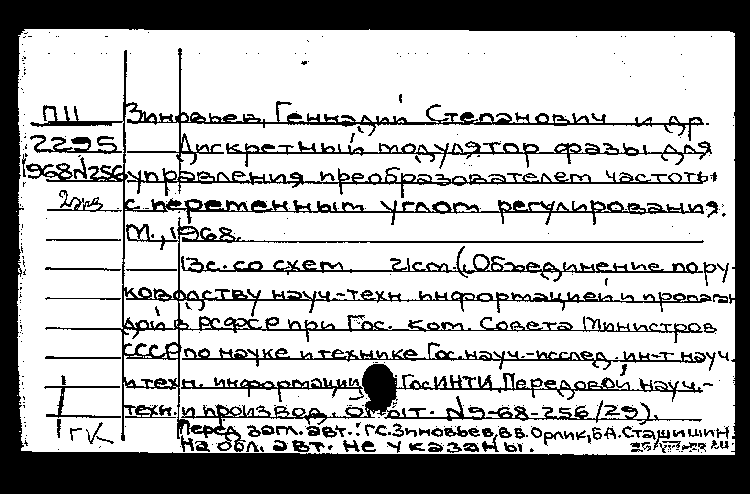 П11 Зиновьев, Геннадий Степанович и др.
2295 Дискретный модулятор фазы для
1968 N256 управления преобразователем частоты
2 экз с переменным углом регулирования.
М., 1968.
13с. со схем. 21см. (Объединение по ру-
ководству науч.-техн. информацией и пропаган-
дой в РСФСР при Гос. ком. Совета Министров
СССР по науке и технике Гос. науч.-исслед. ин-т науч.
и техн. информации ГосИНТИ. Передовой науч.-
техн. и производ. опыт. N9-68-256/29).
Перед загл. авт.: Г.С. Зиновьев, В.В. Орлик, Б.А. Сташишин.
ГК На обл. авт. не указаны.